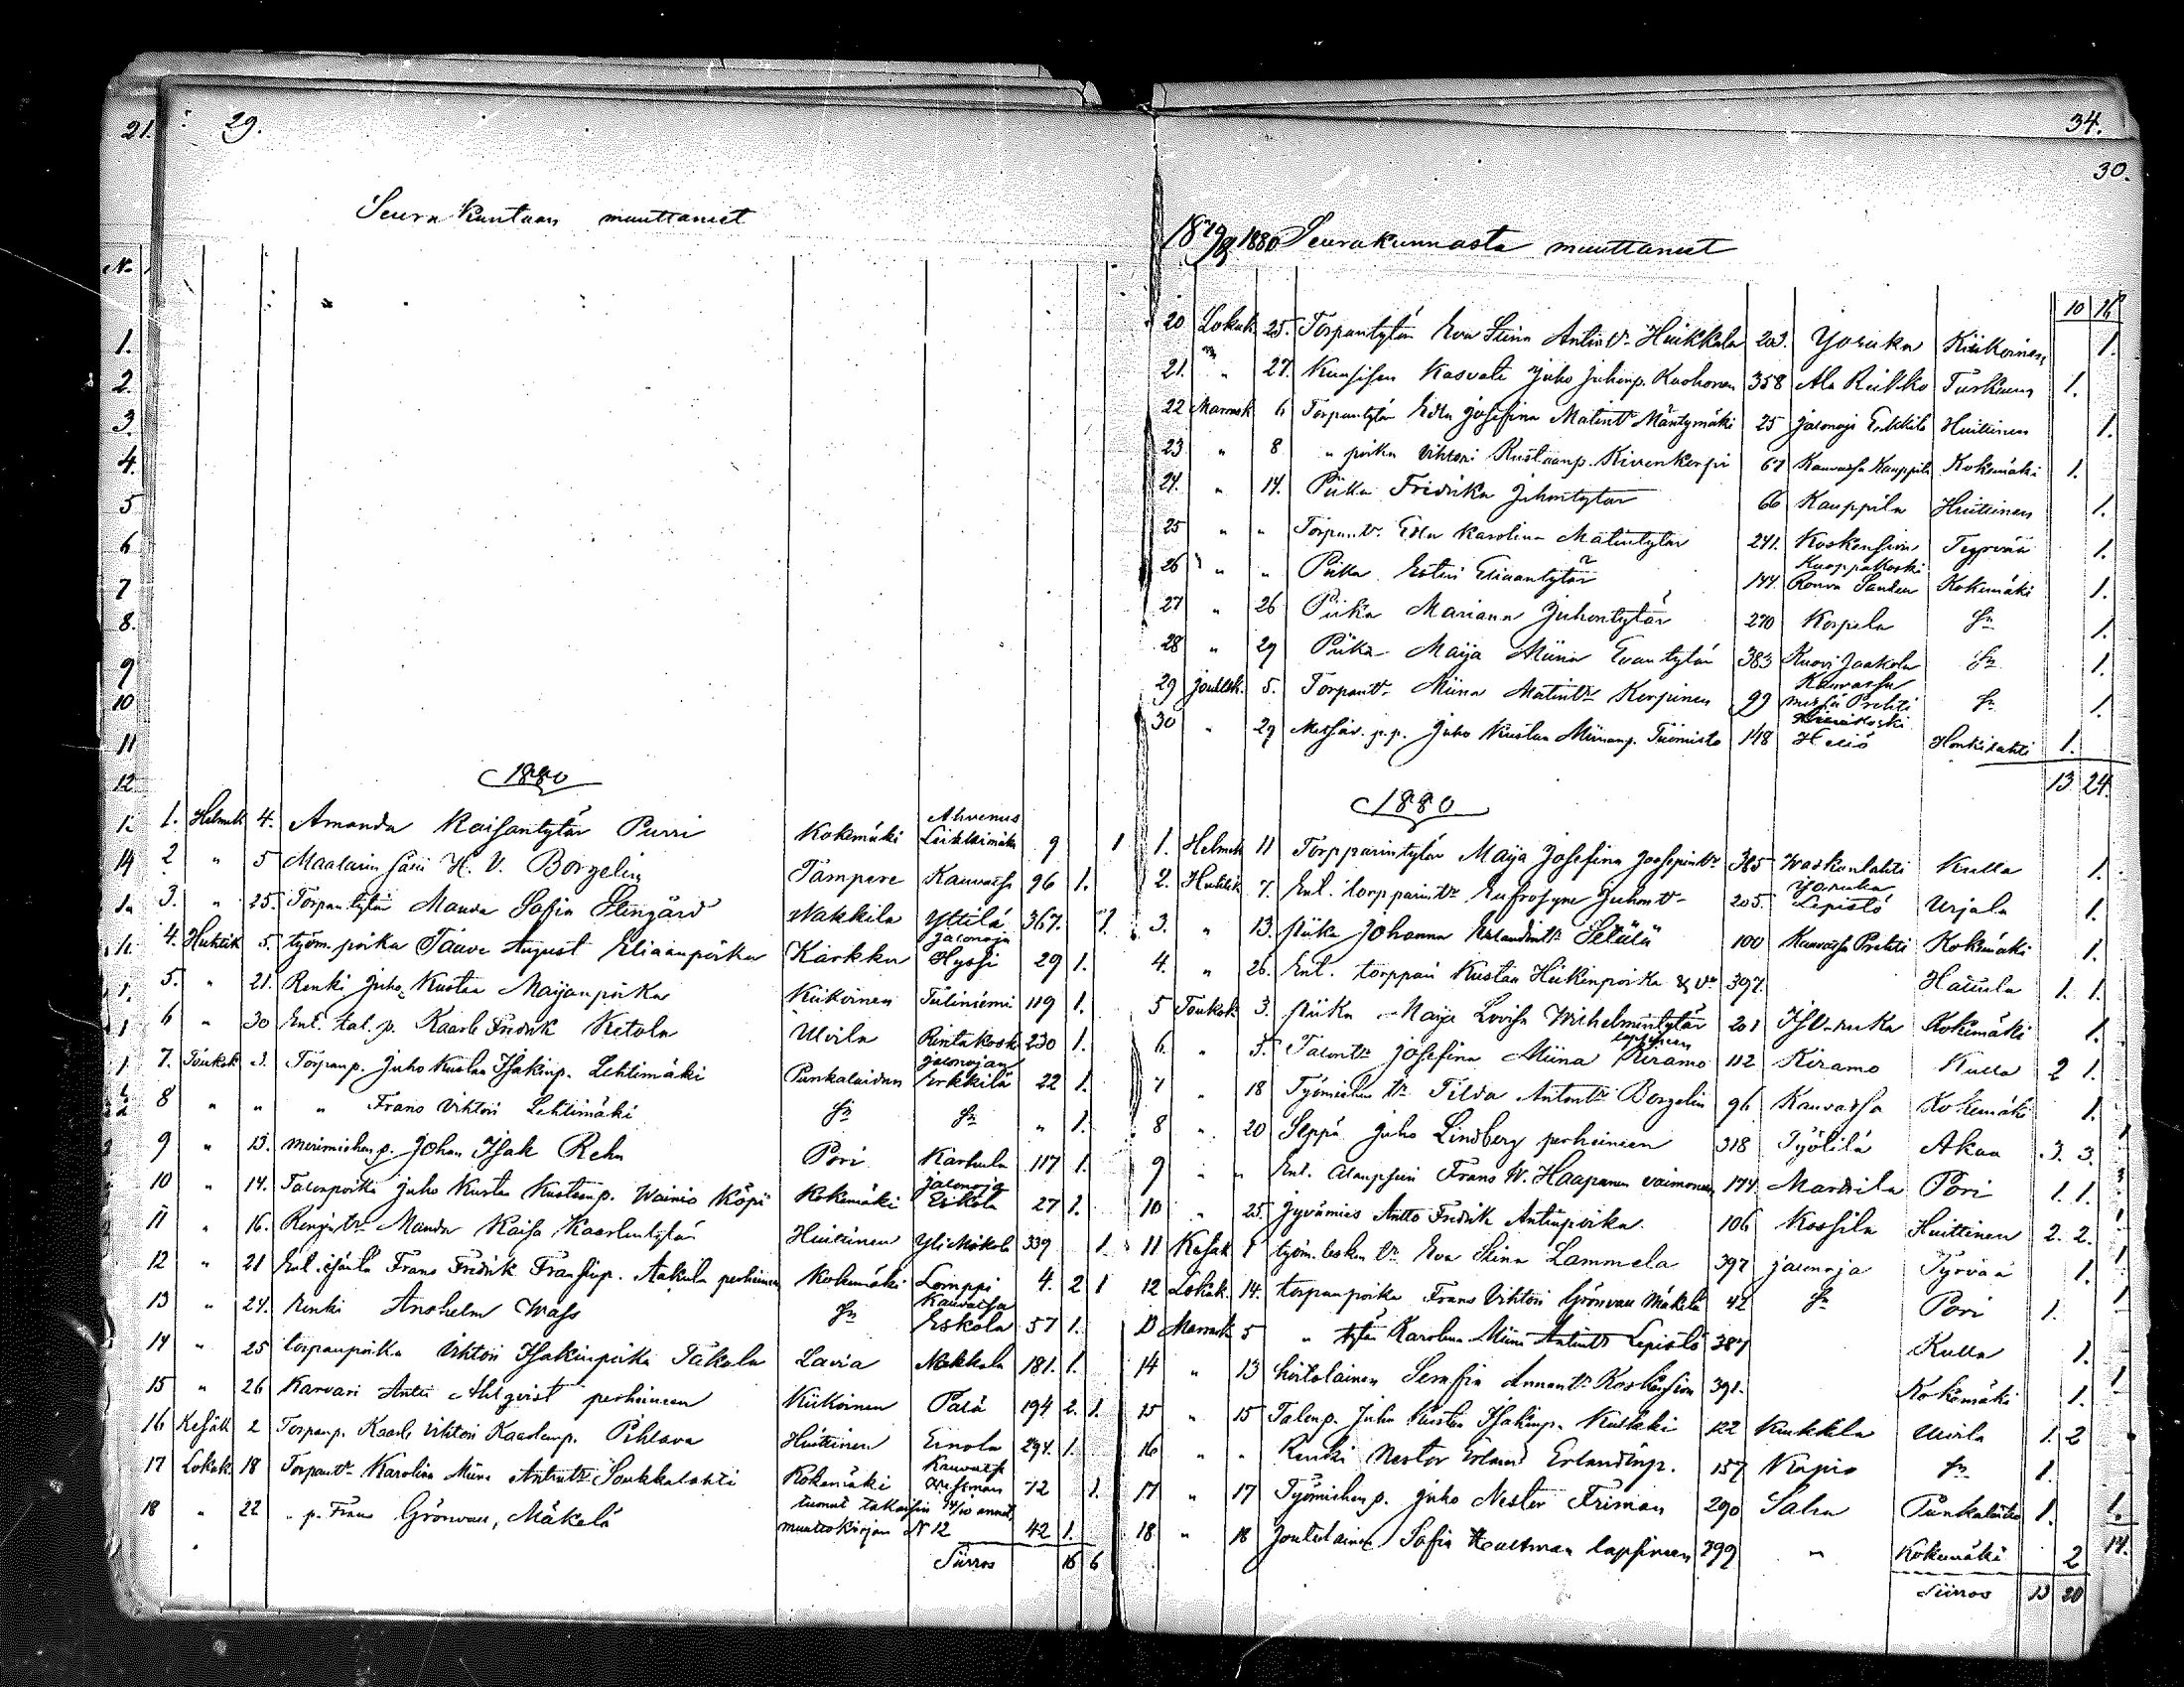 21. 29.
Seurakuntaan muuttaneet
No
1.
2.
3.
4.
5
6
7
8.
9
10
11
12
1880
1. Helmik 4. Amanda Kaisantytär Purri Kokemäki Ahvenus Leikkimäki 9 1
2 " 5 Maalarin H. V. Borgelin Tampere Kauvatsa 96 1.
3. " 25. Torpantytär Manda Sofia Stengård Nakkila Yttilä 367. 1
4. Huhtik 5. työm. poika Taave August Eliaanpoika Karkku Jalonoja Hyssi 29 1.
5. " 21. Renki Juho Kustaa Maijanpoika Kiikoinen Tiiliniemi 119 1.
6 " 30 Ent. tal. p. Kaarle Fredrik Ketola Ulvila Rintakoski 230 1.
7. Toukok 3. Torpanp. Juho Kustaa Isakinp. Lehtimäki Punkalaidun Jalonojan Erkkilä 22 1.
8 " " " Frans Vihtori Lehtimäki Sn Sn " 1.
9 " 13. merimiehen p. Johan Isak Rehn Pori Karhula 117 1.
10 " 14. Talonpoika Juho Kustaa Kustaanp. Wainio Köpi Kokemäki Jalonoja Eskola 27 1.
11 " 16. Rengin tr Manda Kaisa Kaarlentytär Huittinen Yli Mäkelä 339 1
12 " 21 Ent. Frans Fredrik Fransinp. Aakula perheineen Kokemäki Lomppi 4. 2 1
13 " 24. Renki Anshelm Wass Sn Kauvatsa Eskola 57 1.
14 " 25 torpanpoika Vihtori Isakinpoika Takala Lavia Makkala 181. 1.
15 " 26 Karvari Antti Ahlqvist perheineen Kiikoinen Palä 194 2. 1.
16 Kesäk 2 Torpanp. Kaarle Vihtori Kaarlenp. Pihlava Huittinen Einola 294. 1.
17 Lokak. 18 Torpantr Karolina Miina Antintr Soukkalahti Kokemäki Kauvatsa 72 1.
18 " 22 " p. Frans Grönvall, Mäkelä tuonut takaisin 14/10 annet. muuttokirjan N 12 42 1.
Siirros 15 6
34.
30.
1879 & 1880 Seurakunnasta muuttaneet
10 16
20 Lokak 25. Torpantytär Eva Stina Antintr Huikkala 203. Yoruka Kiikoinen 1.
21. " 27. Kunsisen Kasvati Juho Juhonp. Kuohonen 358 Ala Riikko Turkuun 1.
22 Marrask 6 Torpantytär Edla Josefina Matintr Mäntymäki 25 Jalonoja Erkkilä Huittinen 1.
23 " 8 " poika Vihtori Kustaanp. Kivenkorpi 67 Kauvatsa Kauppila Kokemäki 1.
24. " 14. Piika Fridrika Juhontytär 66 Kauppila Huittinen 1.
25 " " Torpantr. Edla Karolina Matintytär 241. Koskensivu Tyrvää 1.
26 " " Piika Esteri Eliaantytär 144. Kuoppakoski Rouva Sanden Kokemäki 1.
27 " 26 Piika Mariana Juhontytär 270 Korpela Sn 1.
28 " 29 Piika Maija Miina Evantytär 383 Kuori Jaakola Sn 1.
29 Jouluk. 5. Torpantr. Miina Matintr Korpinen 99 Kauvatsa Prehti Sn 1.
30 " 29 Metsäv. p.p. Juho Kustaa Miinanp. Tuomisto 148 Heliö Honkilahti 1.
13 24.
1880
1. Helmik 11 Torpparintytär Maija Josefina Josefpintr 385 Waskenlahti Kulla 1.
2. Huhtik 7. Ent. torpparintr Eufrosyne Juhontr 205. Yoruka Lepistö Urjala 1.
3. " 13. Piika Johanna Erlandintr Setälä 100 Kauvatsa Prehti Kokemäki 1.
4. " 26. Ent. torppari Kustaa Heikinpoika & vo 397. Hattula 1. 1.
5 Toukok 3. Piika Maija Lovisa Wilhelmintytär 201 Kokemäki 1.
6. " 5. Talontr Josefina Miina Kiramo lapsineen 112 Kiramo Kulla 2 1.
7 " 18 Työmiehen tr Tilda Antontr Borgelin 96 Kauvatsa Kokemäki 1.
8 " 20 Seppä Juho Lindberg perheineen 318 Työtilä Akaa 3. 3.
9 " " Ent. Frans W. Haapanen vaimoneen 174. Mardila Pori 1. 1.
10 " 25. Jyvämies Antto Fredrik Antinpoika 106 Kossila Huittinen 2. 2.
11 Kesäk 1 työm. lesken tr Eva Stina Lammela 397 Jalonoja Tyrvää 1.
12 Lokak. 14. torpanpoika Frans Vihtori Grönvall Mäkelä 42 Sn Pori 1.
13 Marrask 5 " tytär Karolina Miina Antintr Lepistö 387 Kulla 1.
14 " 13 Serafia Annantr Koskensivu 391. Kokemäki 1.
15 " 15 Talonp. Juho Kustaa Isakinp. Kukkki 122 Kukkla Ulvila 1. 2
16 " " Renki Nestor Erland Erlandinp. 157 Kupio Sn 1.
17 " 17 Työmiehen p. Juho Nestor Friman 290 Salru Punkalaidun 1.
18 " 18 Joutolainen Sofia Heustman lapsineen 299 " Kokemäki 2
Siirros 13 20